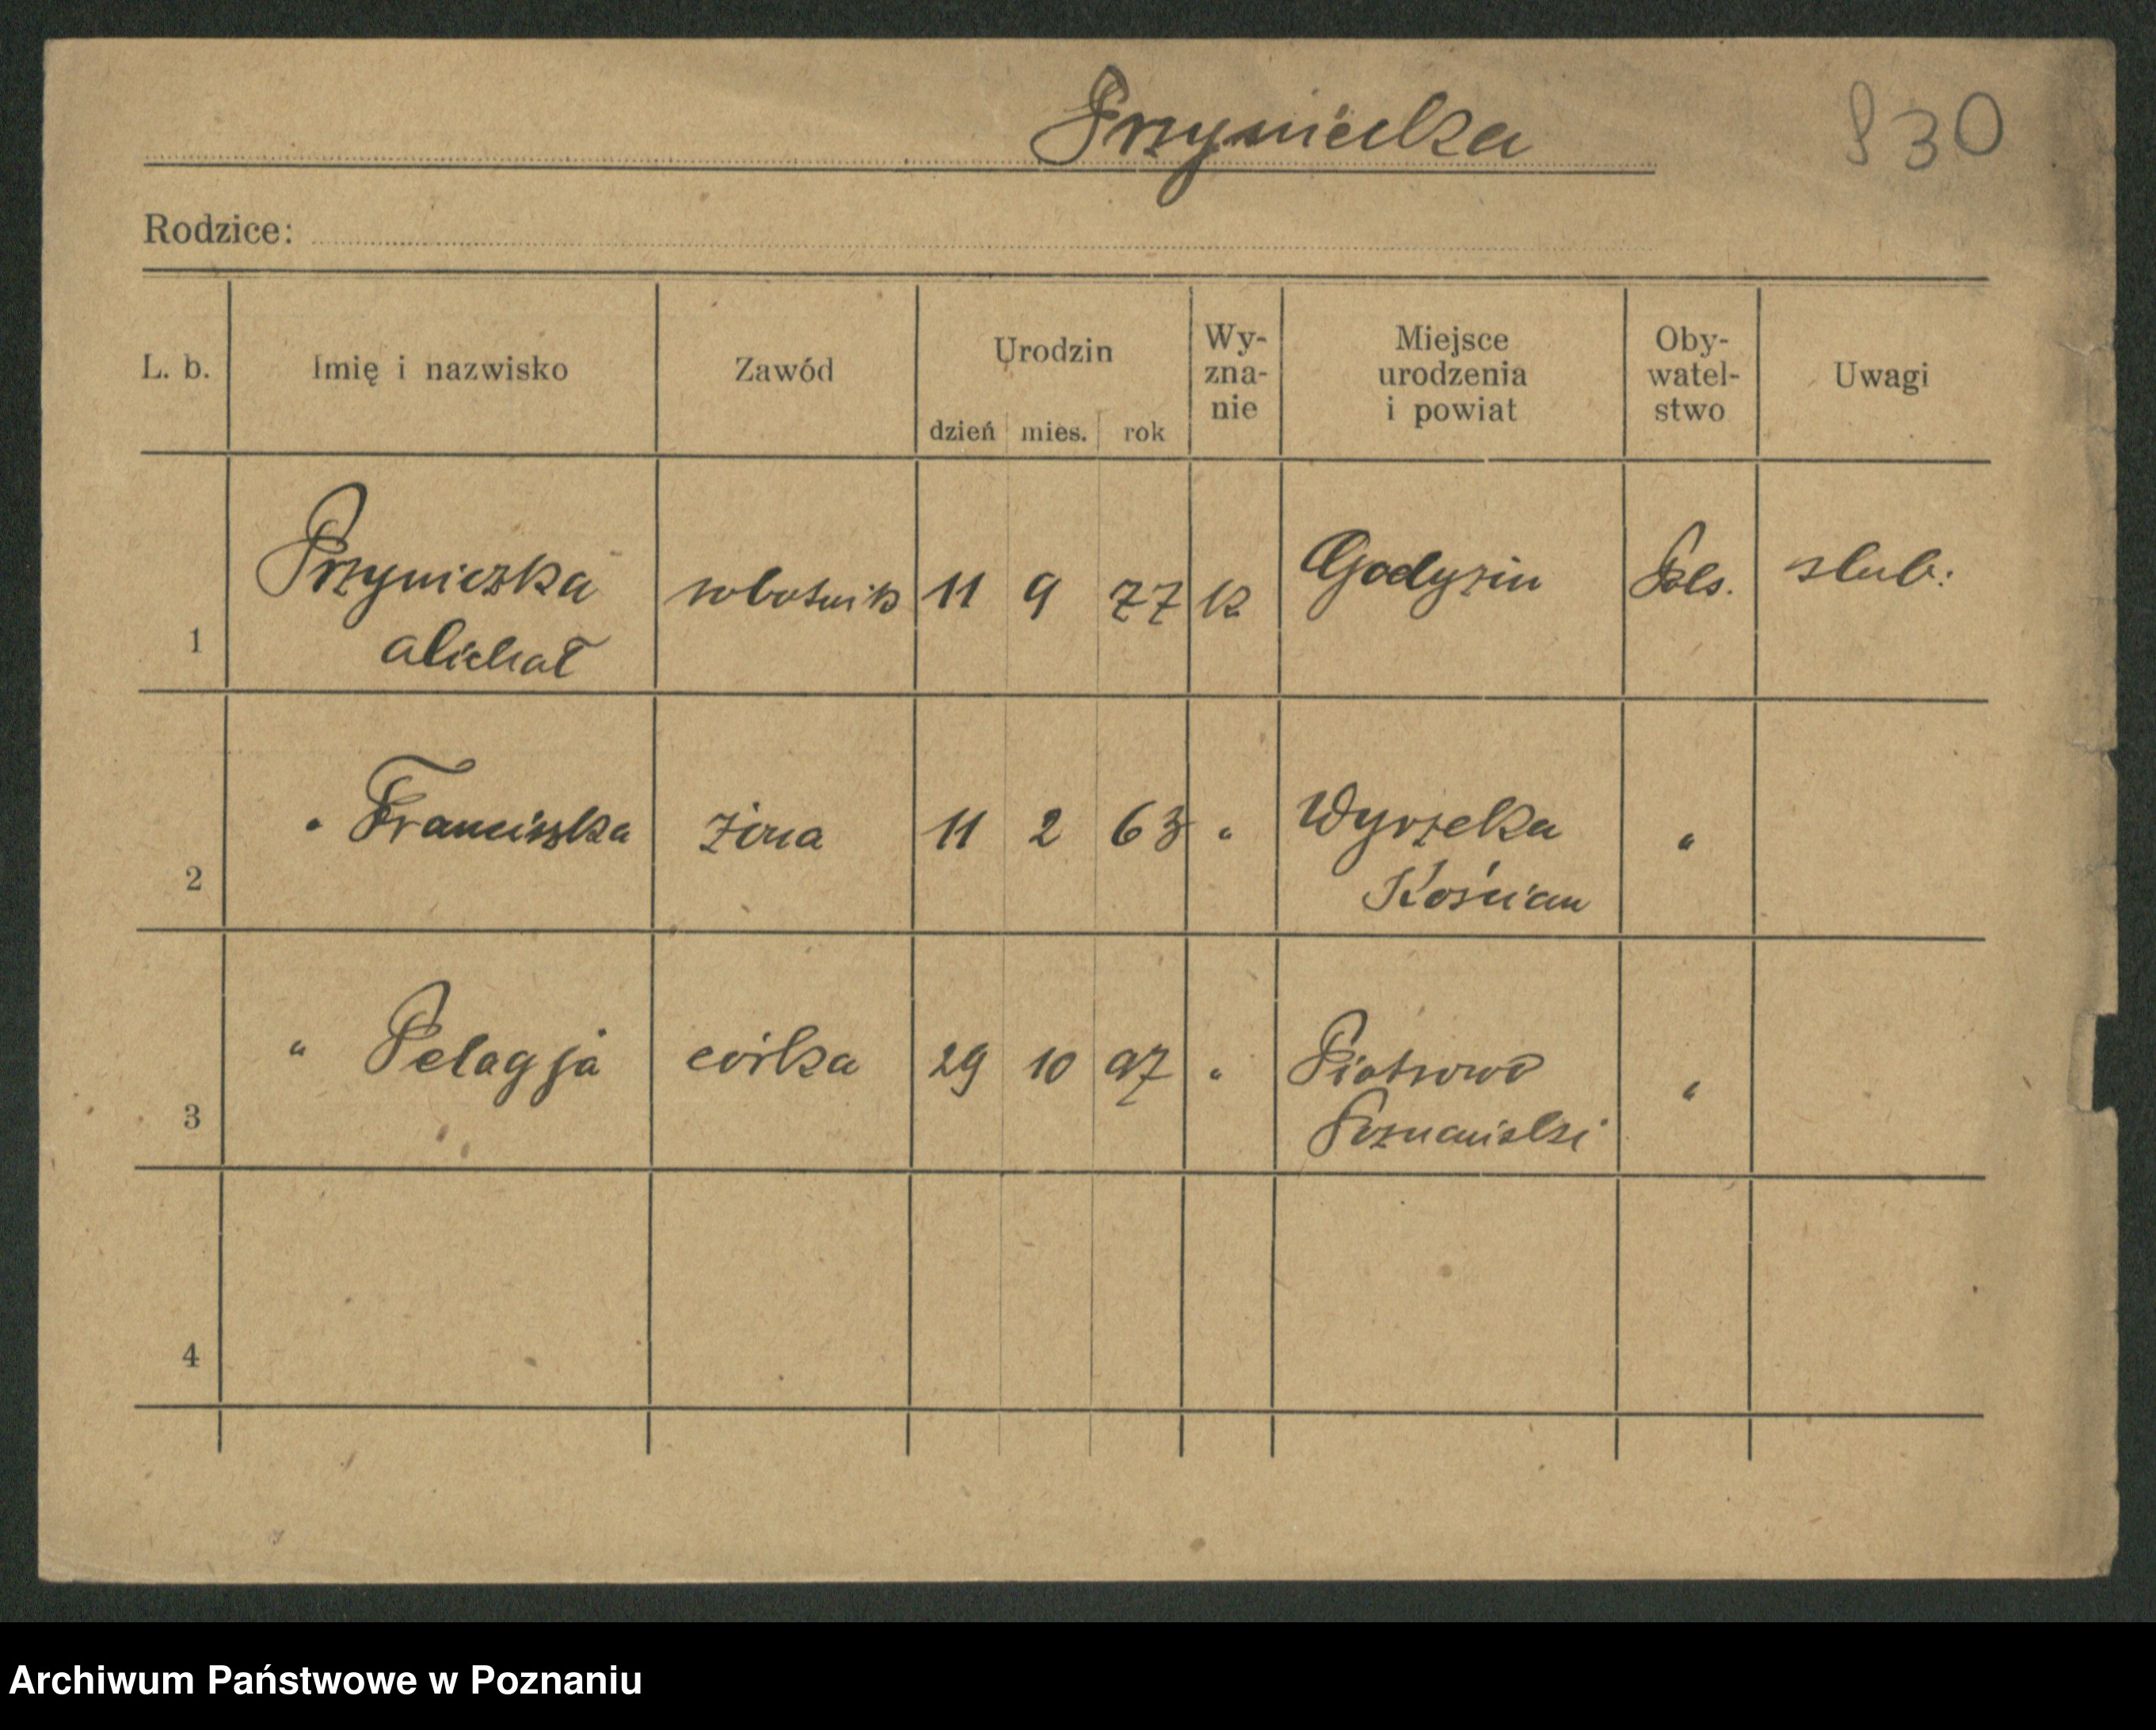 Przyniecka
830
Rodzice:
L. b. Imię i nazwisko Zawód Urodzin dzień mies. rok Wy- zna- nie Miejsce urodzenia i powiat Oby- watel- stwo Uwagi
1 Przyniczka Michał robotnik 11 9 77 k Godyzin Pols. slub:
2 " Franciszka żona 11 2 63 " Wyrzeka Kościan "
3 " Pelagja córka 29 10 97 " Piotrowo Poznański "
4
Archiwum Państwowe w Poznaniu